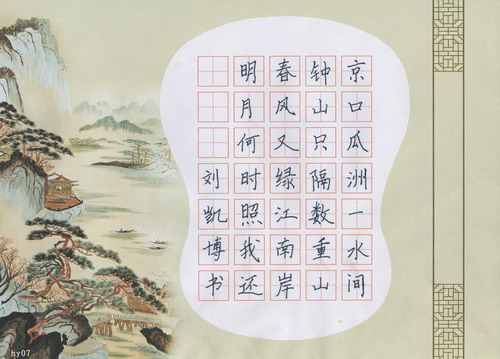 京口瓜洲一水间
钟山只隔数重山
春风又绿江南岸
明月何时照我还
刘凯博书
hy07